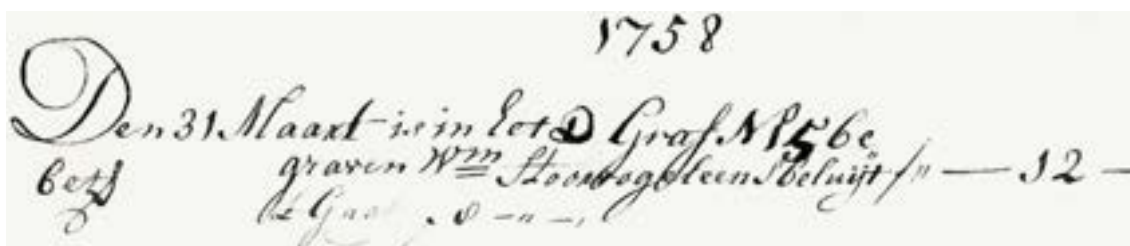 1758
Den 31 Maart is in Lot D Graf N 5 be
graven Wm een beluijt f" — 12 —
bet